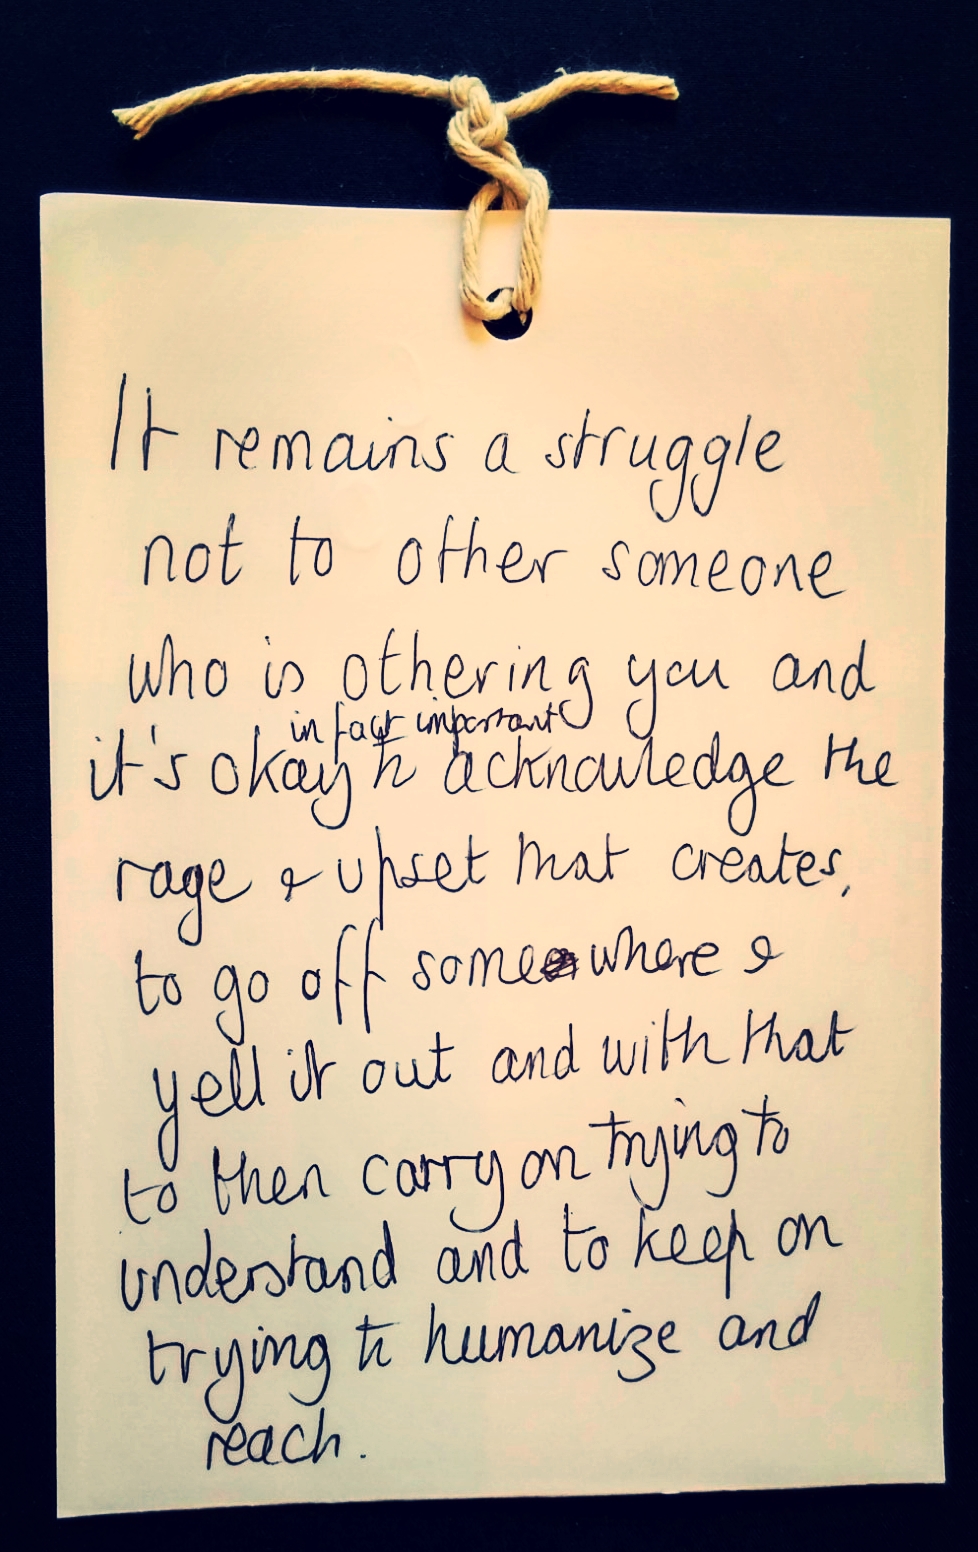 It remains a struggle
not to other someone
who is othering you and
in fact important
it's okay to acknowledge the
rage & upset that creates,
to go off some where &
yell it out and with that
to then carry on trying to
understand and to keep on
trying to humanize and
reach.